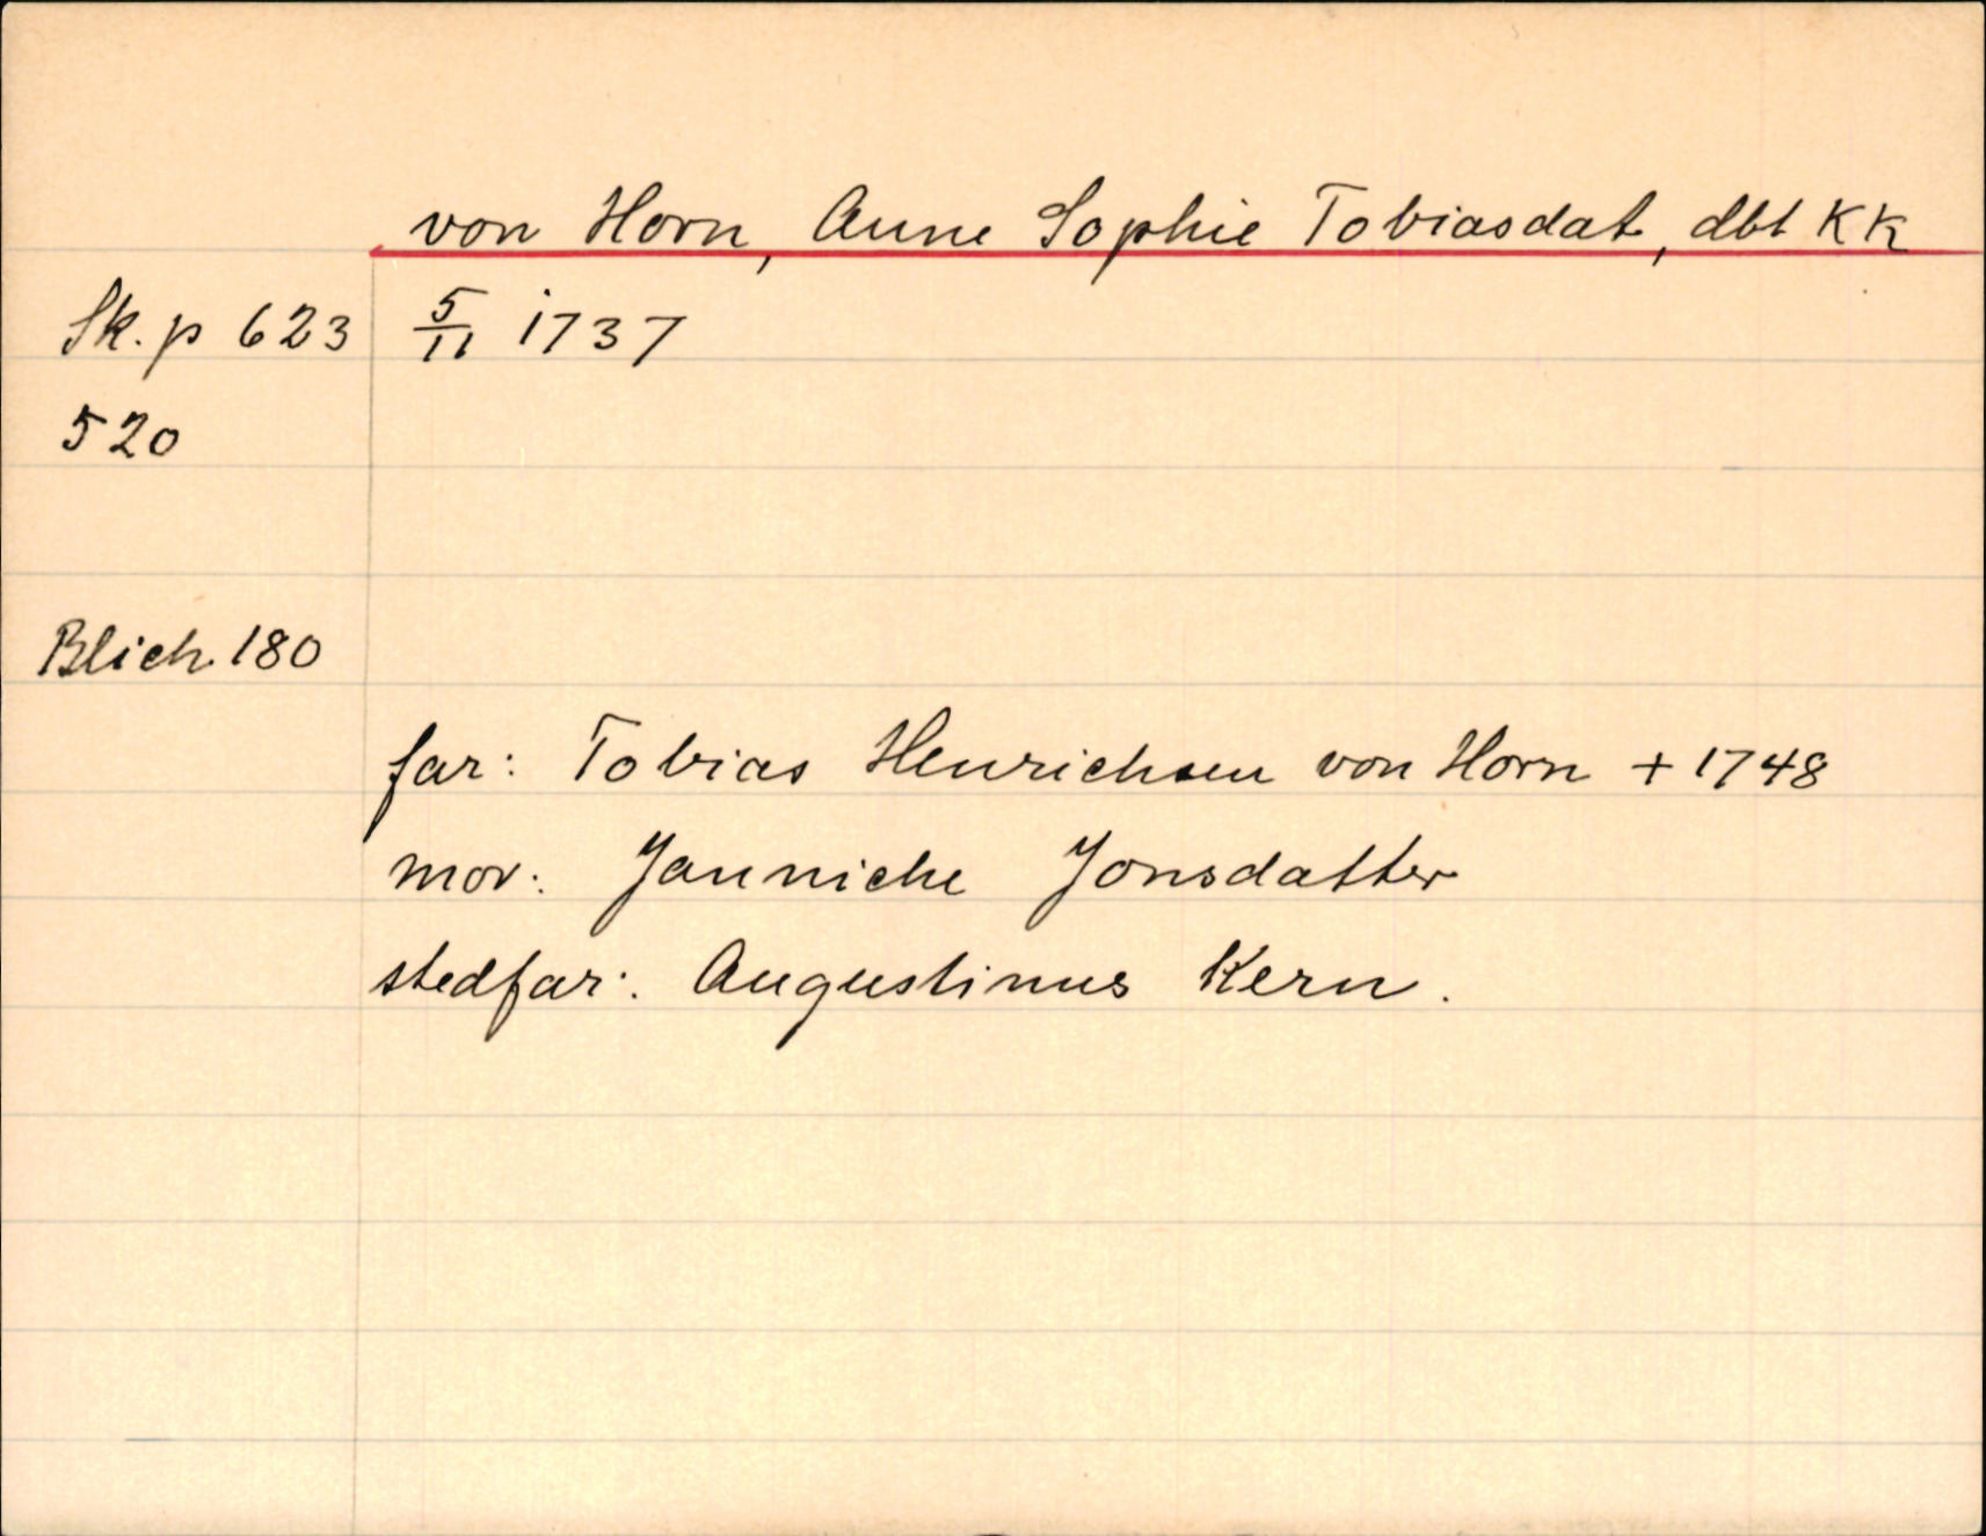 von Horn, Anne Sophie Tobiasdat, dbt KK
Sk. p 623 5/11 1737
520
Blich. 180
far: Tobias Henrichsen von Horn + 1748
mor: Janniche Jonsdatter
stedfar: Augustinus Kern.